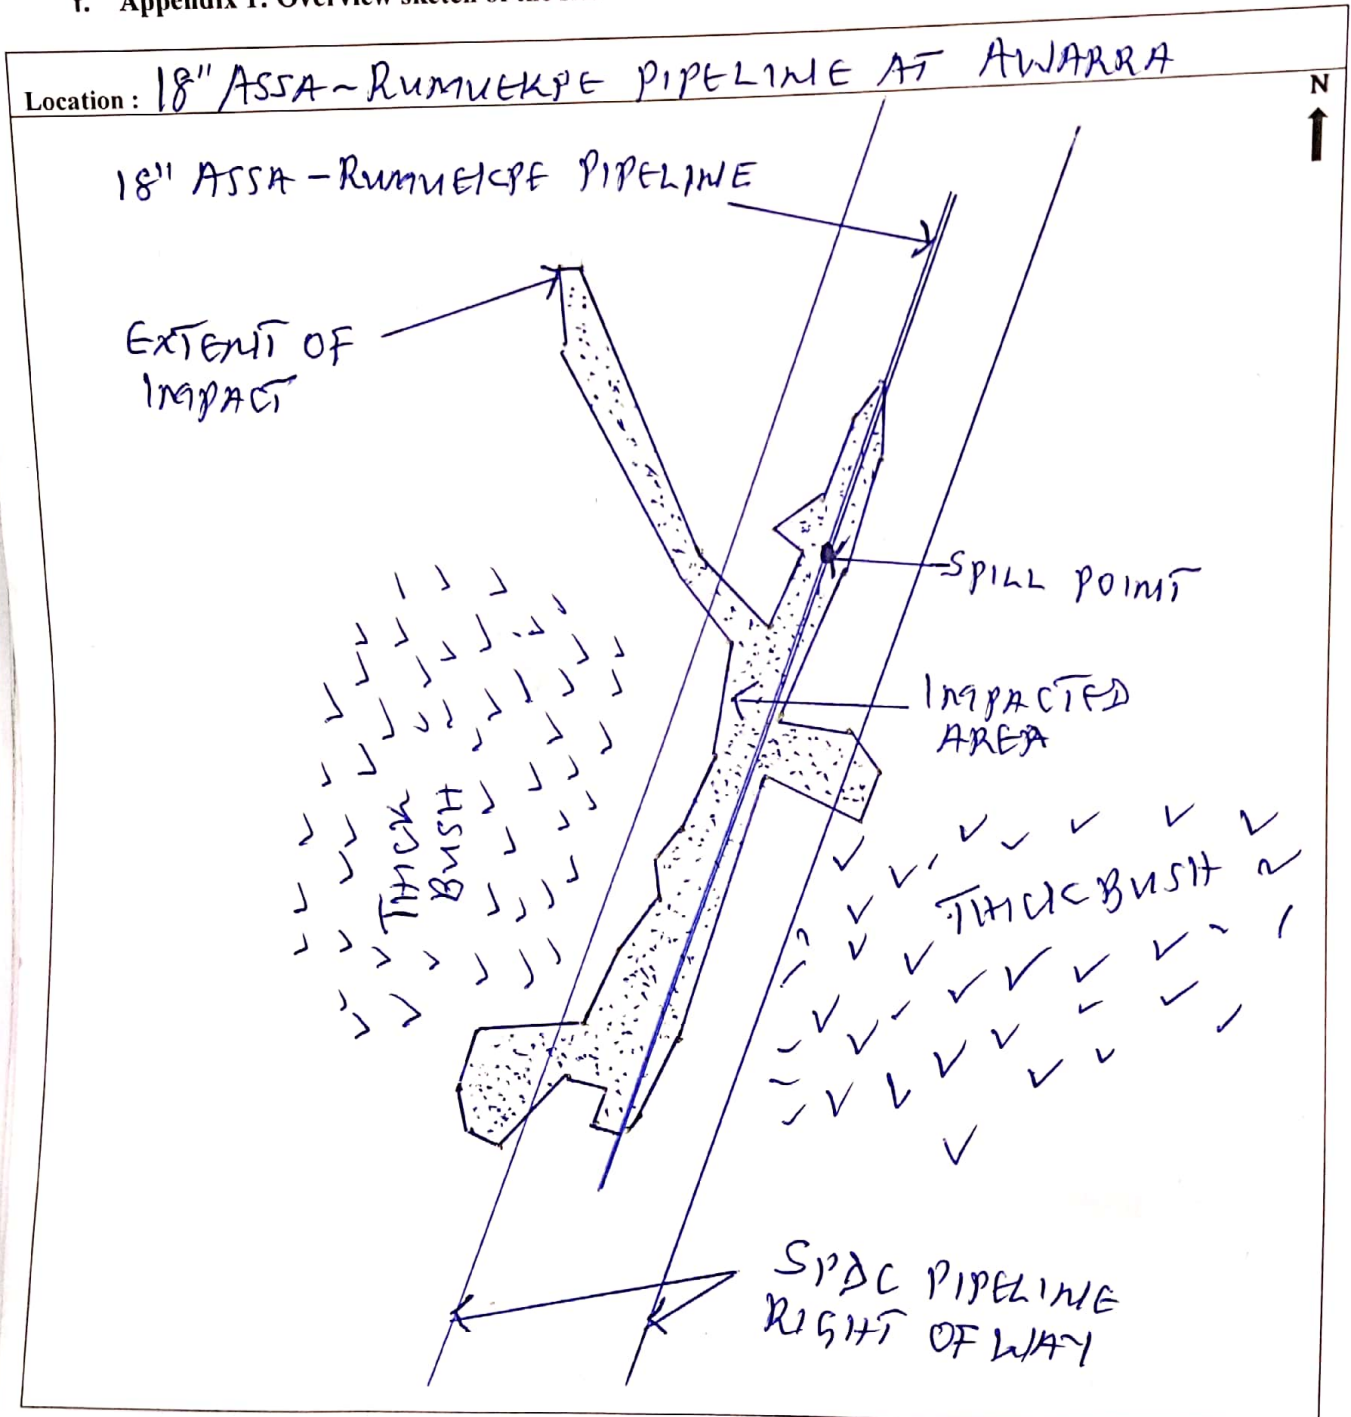 f. Appendix 1: Overview sketch of the
Location : 18" ASSA-RUMUEKPE PIPELINE AT AWARRA
N
18" ASSA-RUMUEKPE PIPELINE
EXTENT OF
IMPACT
SPILL POINT
IMPACTED
AREA
THICK
BUSH
THICK BUSH
SPDC PIPELINE
RIGHT OF WAY